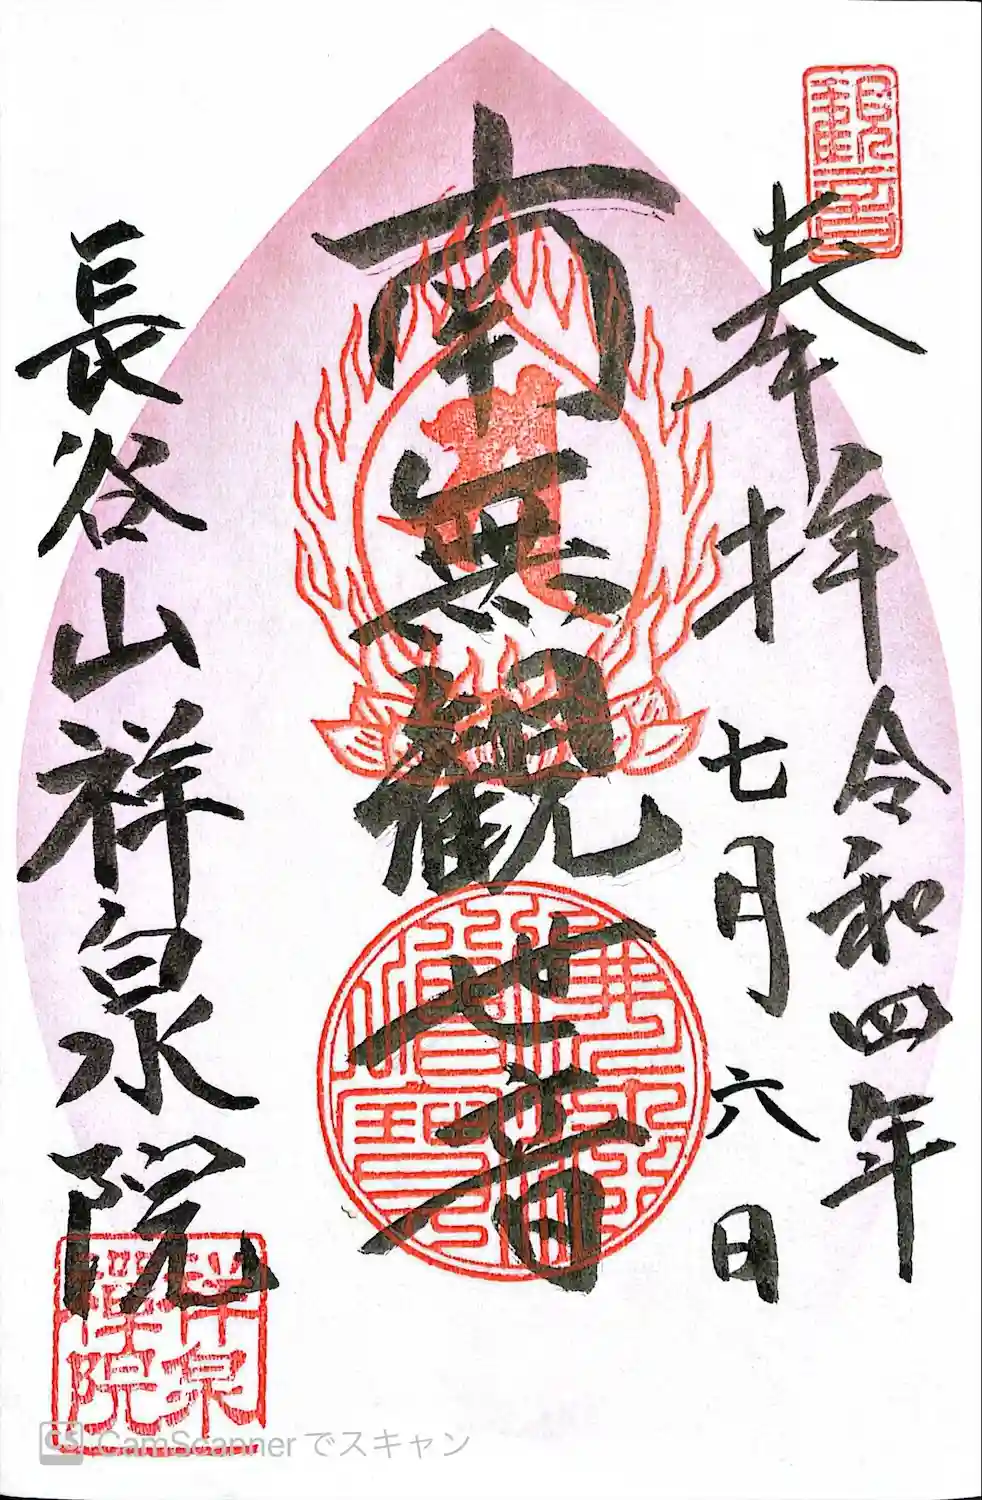 奉拝
令和四年
七月六日
南無観世音
長谷山祥泉院
祥泉
禅院
CS CamScanner でスキャン